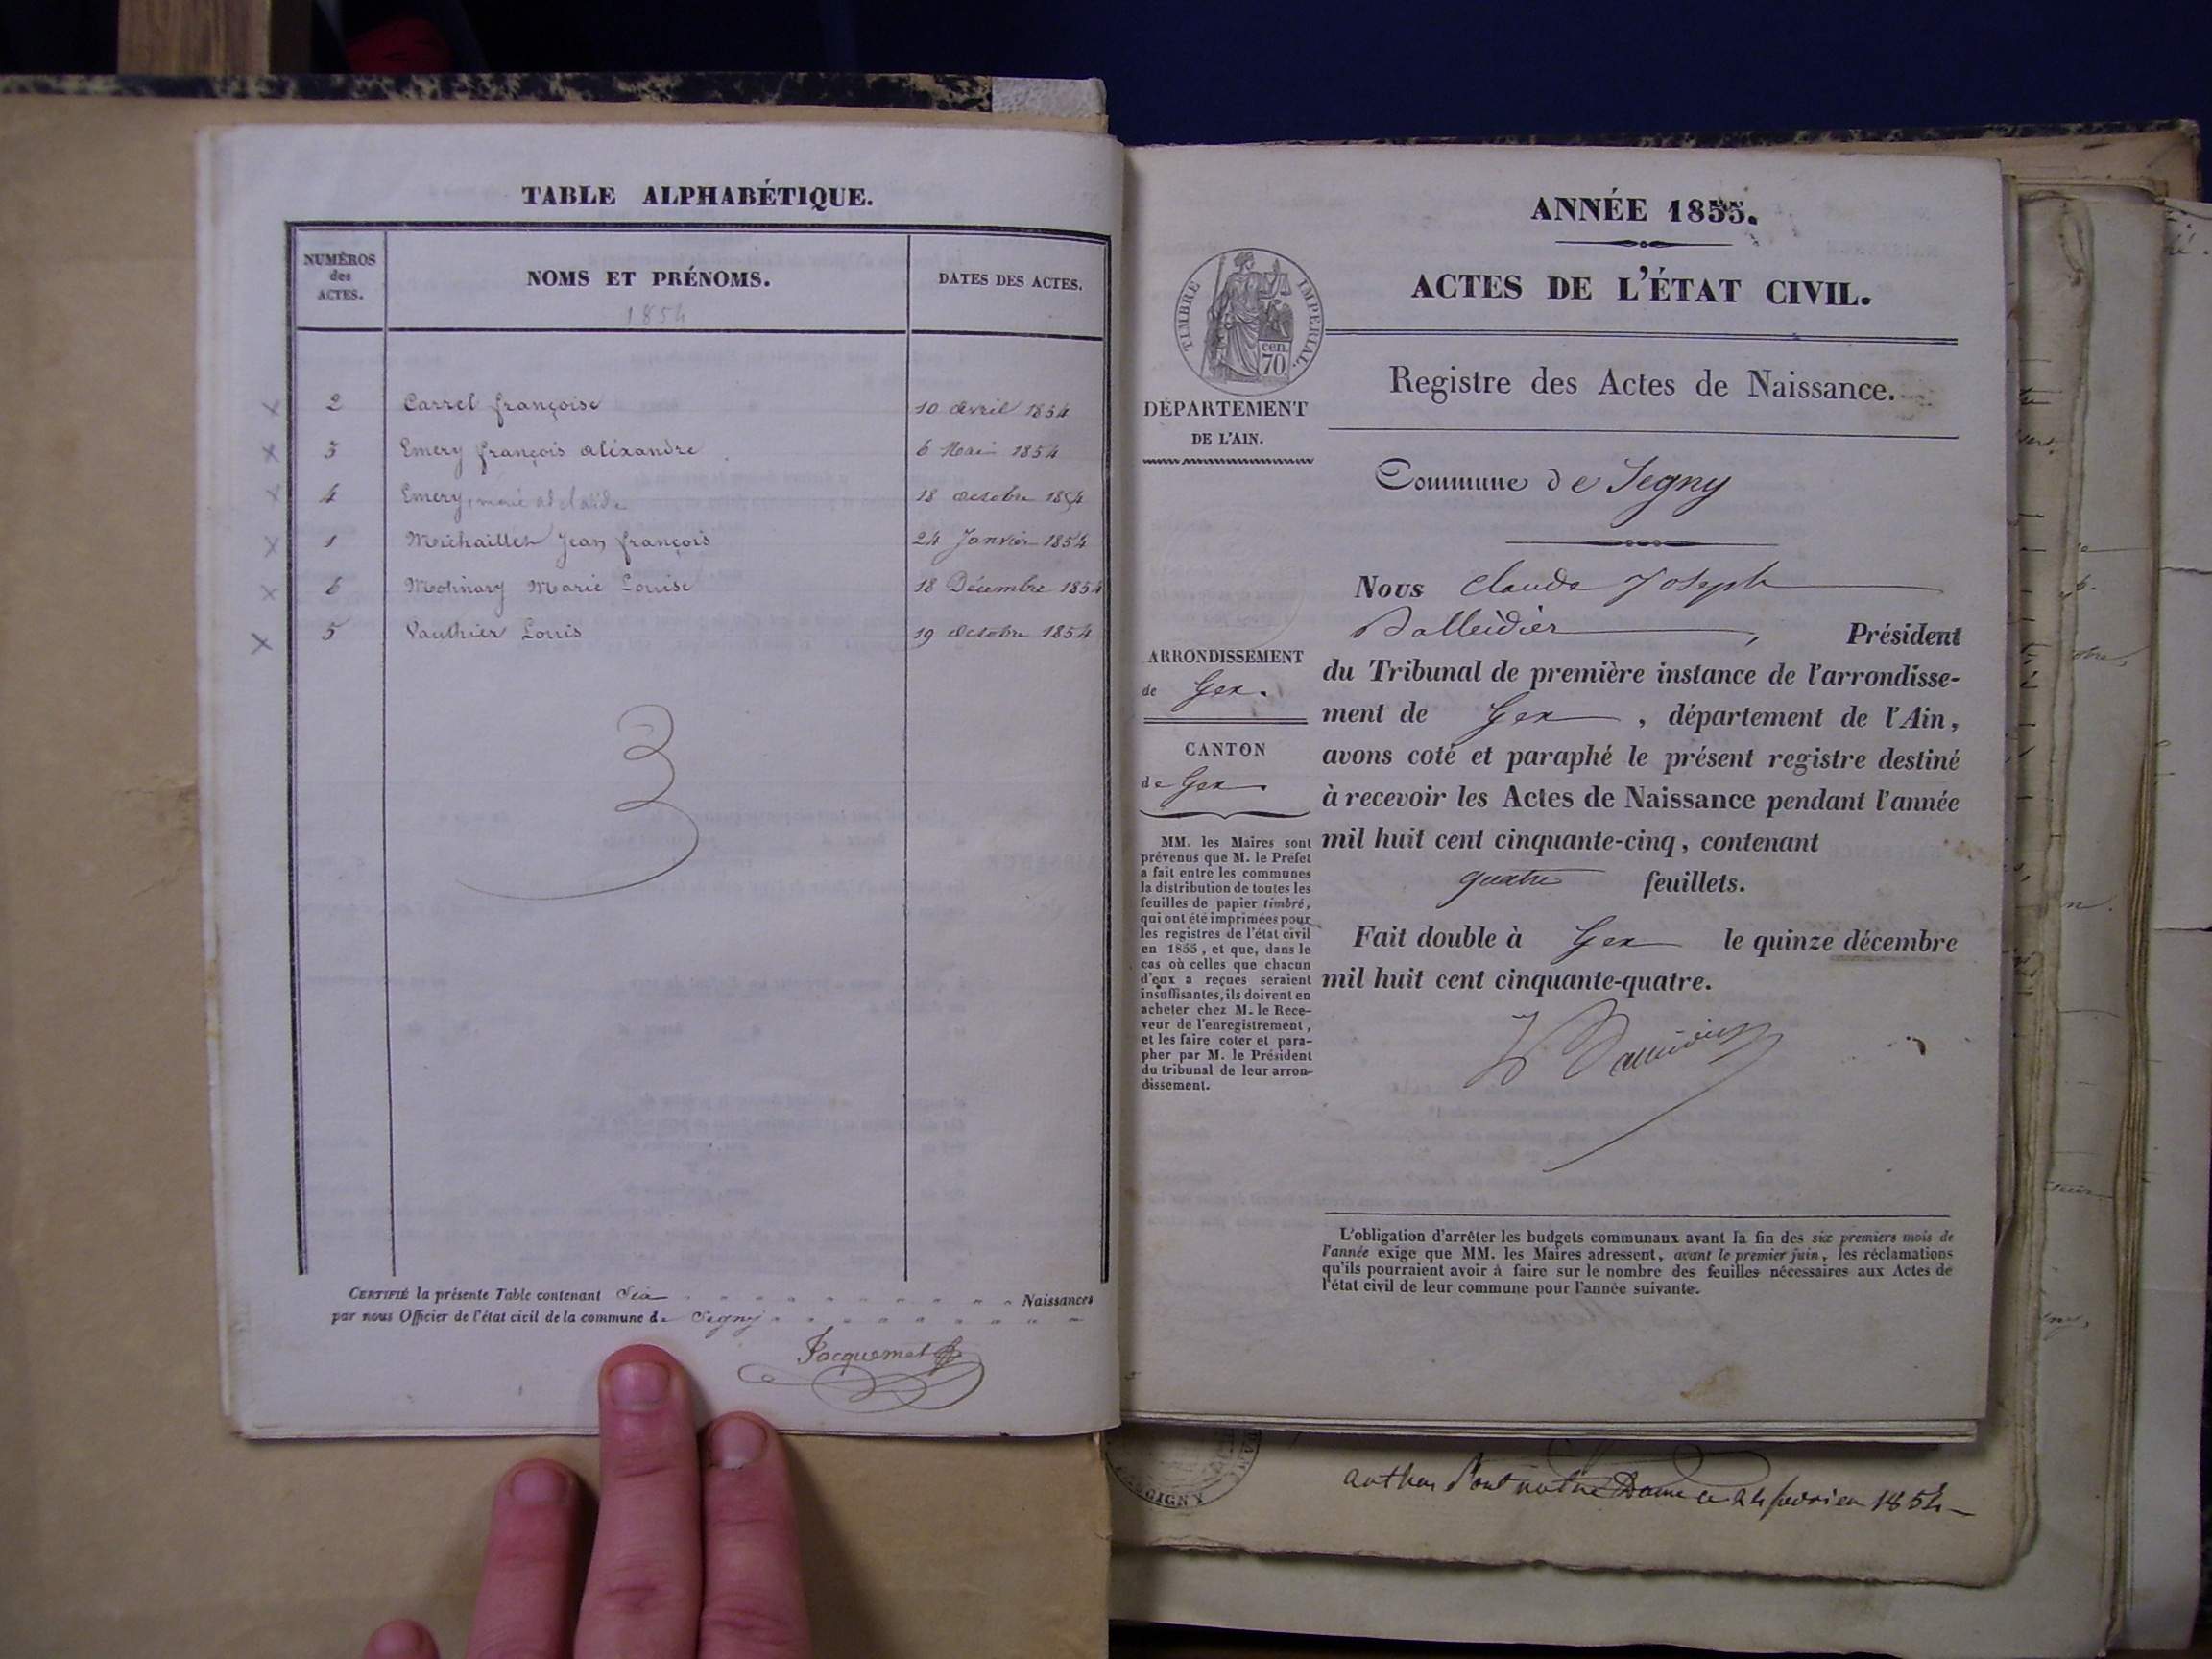 TABLE ALPHABÉTIQUE.
NUMÉROS des ACTES.
NOMS ET PRÉNOMS.
1854
DATES DES ACTES.
2 Carrel françoise 10 avril 1854
3 Emery françois aléxandre 6 Mai 1854
4 Emery, marie adelaïde 18 octobre 1854
1 Michaillet Jean françois 24 Janvier 1854
6 Molinary Marie Louise 18 Décembre 1854
5 Vauthier Louis 19 octobre 1854
3
CERTIFIÉ la présente Table contenant Six Naissances
par nous Officier de l'état civil de la commune de Segny
Jacquemet
ANNÉE 1855.
ACTES DE L'ÉTAT CIVIL.
TIMBRE IMPÉRIAL.
cen.
70
Registre des Actes de Naissance.
DÉPARTEMENT
DE L'AIN.
Commune de Segny
Nous Claude Joseph
Balleidier, Président
du Tribunal de première instance de l'arrondisse-
ment de Gex, département de l'Ain,
avons coté et paraphé le présent registre destiné
à recevoir les Actes de Naissance pendant l'année
mil huit cent cinquante-cinq, contenant
quatre feuillets.
Fait double à Gex le quinze décembre
mil huit cent cinquante-quatre.
Balleidier
ARRONDISSEMENT
de Gex.
CANTON
de Gex.
MM. les Maires sont
prévenus que M. le Préfet
a fait entre les communes
la distribution de toutes les
feuilles de papier timbré,
qui ont été imprimées pour
les registres de l'état civil
en 1855, et que, dans le
cas où celles que chacun
d'eux a reçues seraient
insuffisantes, ils doivent en
acheter chez M. le Rece-
veur de l'enregistrement,
et les faire coter et para-
pher par M. le Président
du tribunal de leur arron-
dissement.
L'obligation d'arrêter les budgets communaux avant la fin des six premiers mois de
l'année exige que MM. les Maires adressent, avant le premier juin, les réclamations
qu'ils pourraient avoir à faire sur le nombre des feuilles nécessaires aux Actes de
l'état civil de leur commune pour l'année suivante.
notre Dame ce 24 fevrier 1854